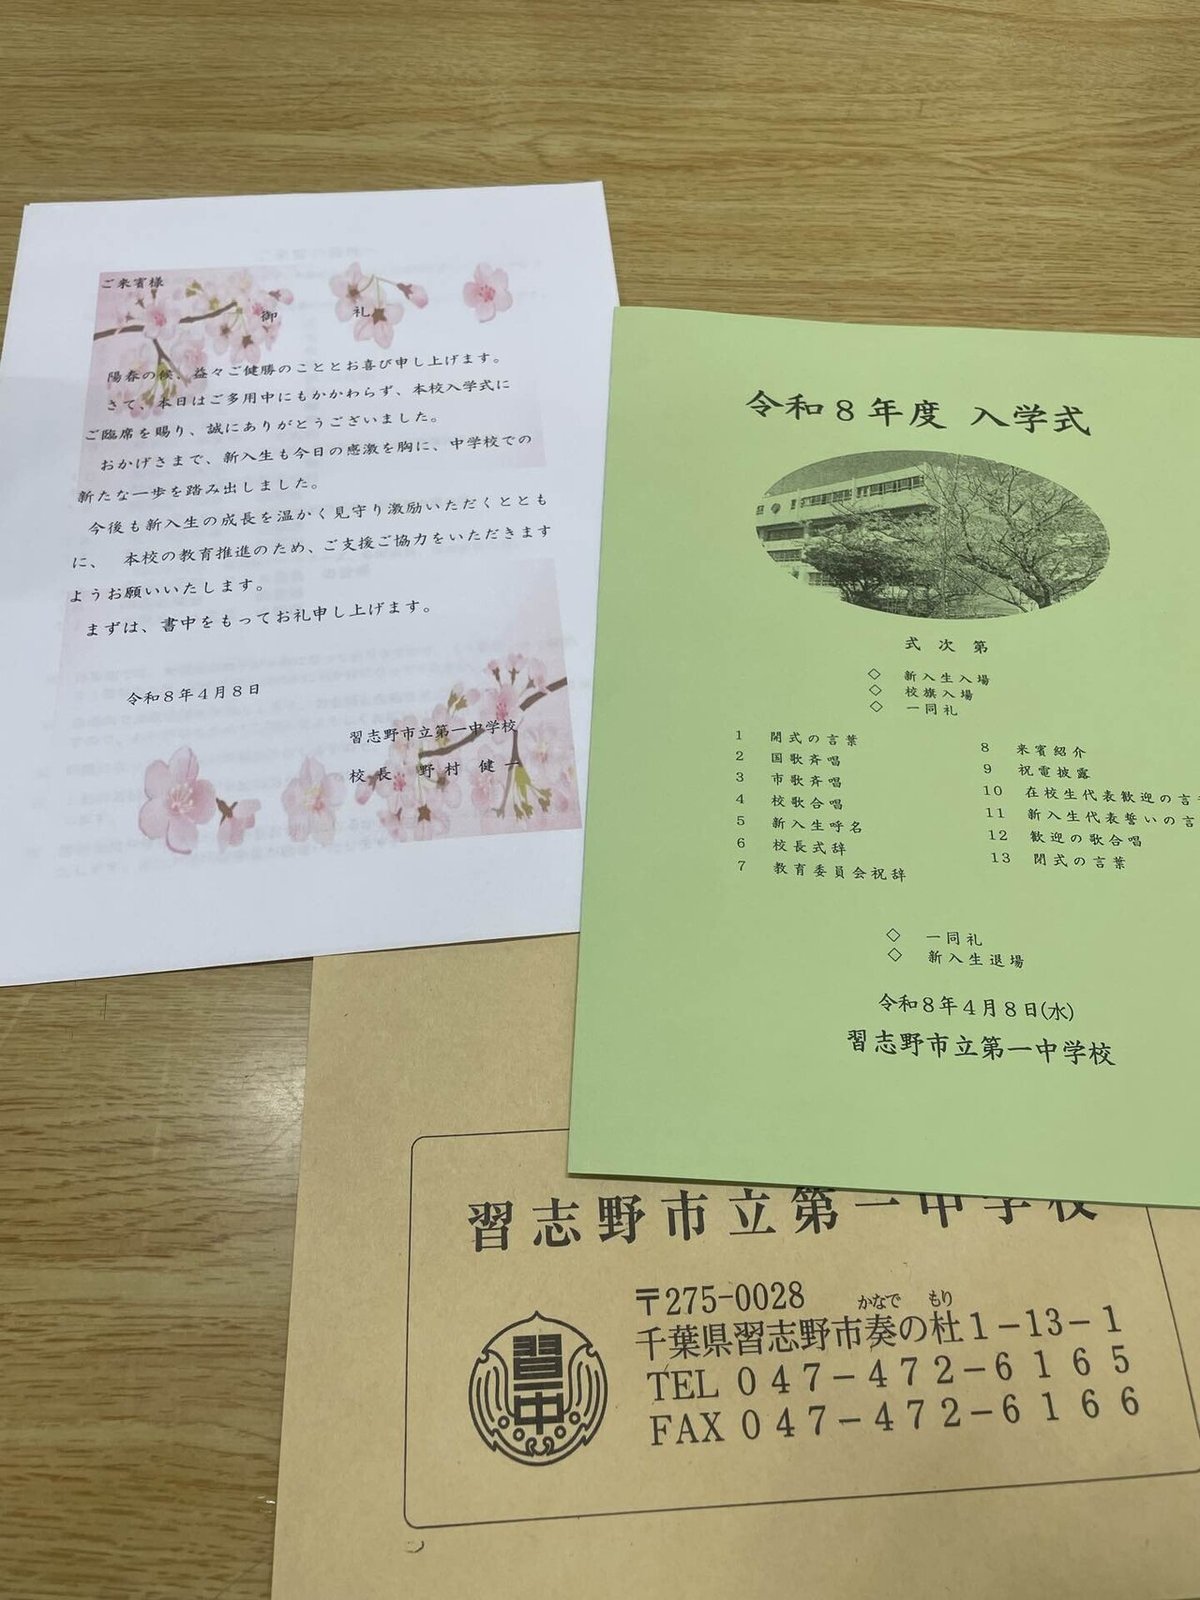 ご来賓様
御 礼
陽春の候、益々ご健勝のこととお喜び申し上げます。
さて、本日はご多用中にもかかわらず、本校入学式に
ご臨席を賜り、誠にありがとうございました。
おかげさまで、新入生も今日の感激を胸に、中学校での
新たな一歩を踏み出しました。
今後も新入生の成長を温かく見守り激励いただくととも
に、 本校の教育推進のため、ご支援ご協力をいただきます
ようお願いいたします。
まずは、書中をもってお礼申し上げます。
令和8年4月8日
習志野市立第一中学校
校長 野村 健一
令和8年度 入学式
式 次 第
◇ 新入生入場
◇ 校旗入場
◇ 一同礼
1 開式の言葉
2 国歌斉唱
3 市歌斉唱
4 校歌合唱
5 新入生呼名
6 校長式辞
7 教育委員会祝辞
8 来賓紹介
9 祝電披露
10 在校生代表歓迎の言
11 新入生代表誓いの言
12 歓迎の歌合唱
13 閉式の言葉
◇ 一同礼
◇ 新入生退場
令和8年4月8日(水)
習志野市立第一中学校
習志野市立第一中学校
〒275-0028
かなで もり
千葉県習志野市奏の杜1-13-1
TEL 047-472-6165
FAX 047-472-6166
習一中